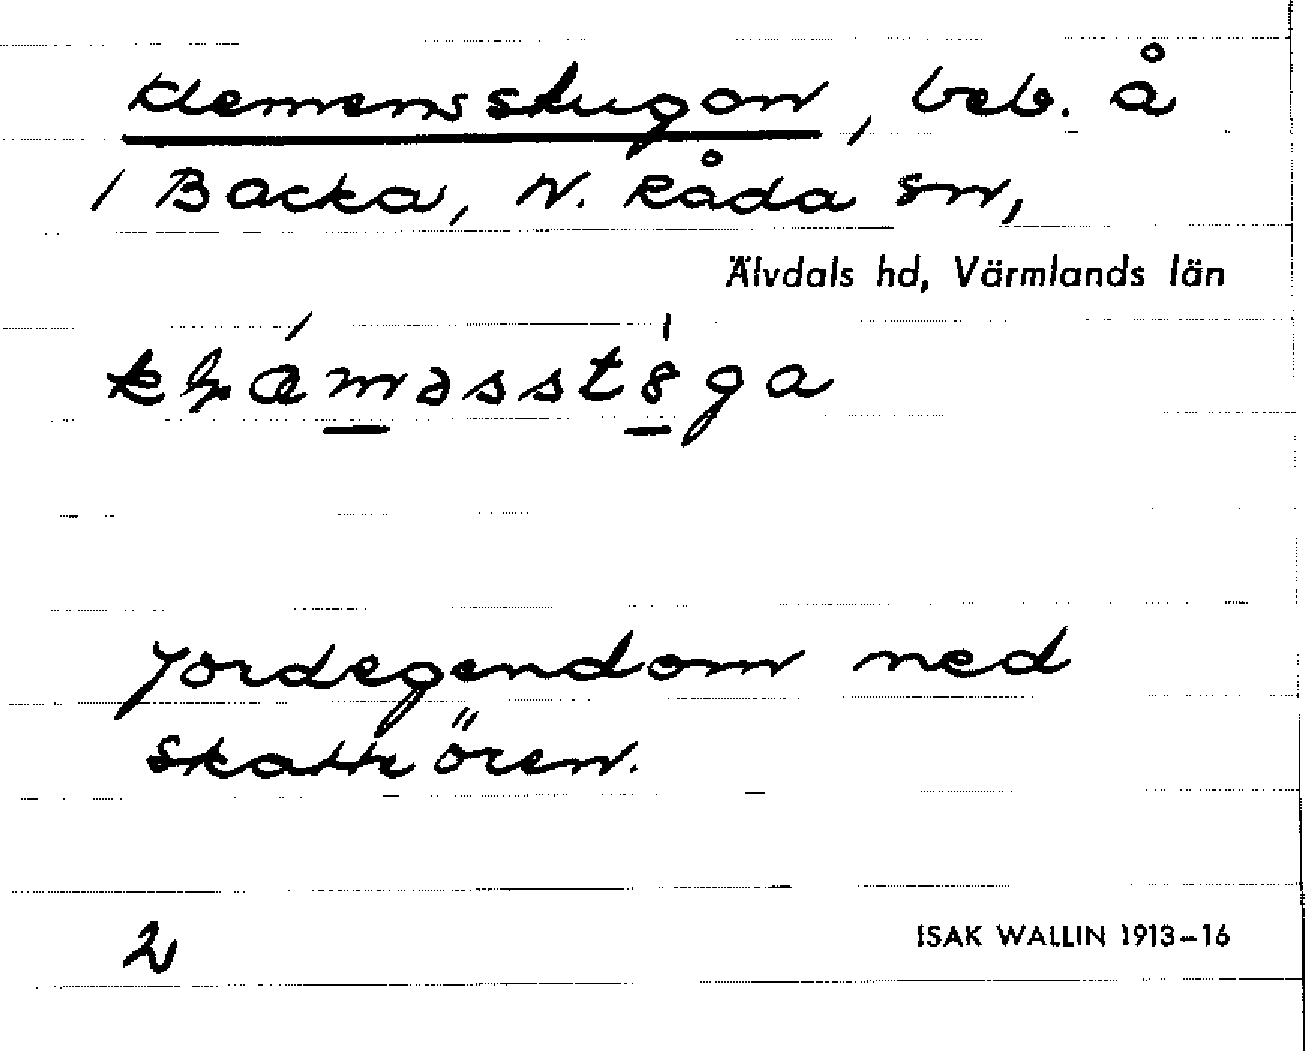 Klemensstugon, beb. å
/ Backa, N. Råda sn,
Älvdals hd, Värmlands län
Jordegendom med
skatteören.
2
ISAK WALLIN 1913–16